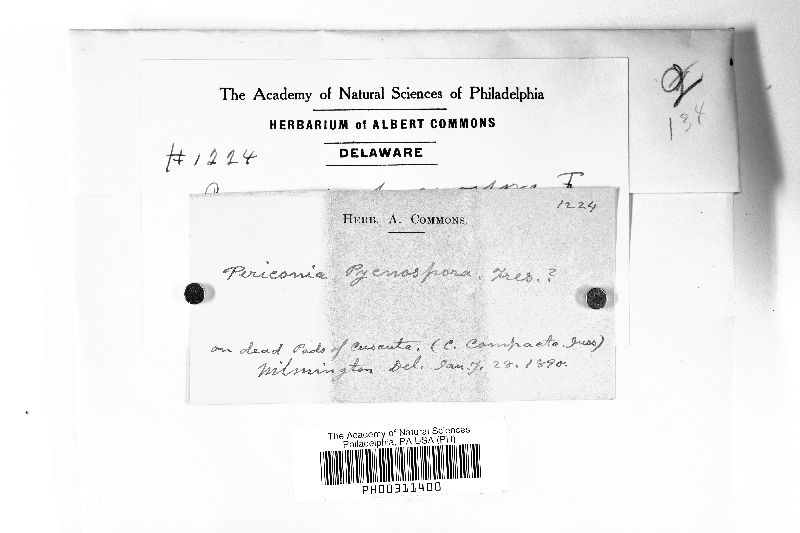 The Academy of Natural Sciences of Philadelphia
HERBARIUM of ALBERT COMMONS
DELAWARE
#1224
134
1224
HERB. A. COMMONS.
Periconia Pycnospora. Fres.?
on dead Pods of Cuscuta. (C. Compacta Juss)
Wilmington Del. Jany. 28. 1890.
The Academy of Natural Sciences
Philadelphia, PA USA (PH)
PH00311400